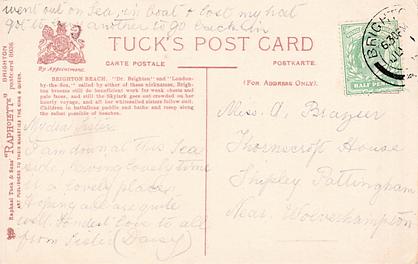 went out on Sea, in boat & lost my hat
got another to go back in
TUCK'S POST CARD
By Appointment.
CARTE POSTALE
POSTKARTE.
(FOR ADDRESS ONLY).
BRIGHTON BEACH. "Dr. Brighton" and "London-
by-the-Sea," called by either of these nicknames, Brigh-
ton breezes still do beneficent work for weak chests and
pale faces, and still the Skylark goes out crowded on her
hourly voyage, and all her whitesailed sisters follow suit.
Children in batallions paddle and bathe and romp along
the robust possible of beaches.
My dear Sister
I am down at this Sea
side, having lovely time
it a lovely place
Hoping all are quite
well. Fondest love to all
from Sister (Daisy)
Miss. A. Brazier
Thornscroft House
Shipley Pattingham
Near Wolverhampton
HALF PENNY
BRIGHTO
Raphael Tuck & Sons' "RAPHOTYPE"
BRIGHTON
ART PUBLISHERS TO THEIR MAJESTIES THE KING & QUEEN.